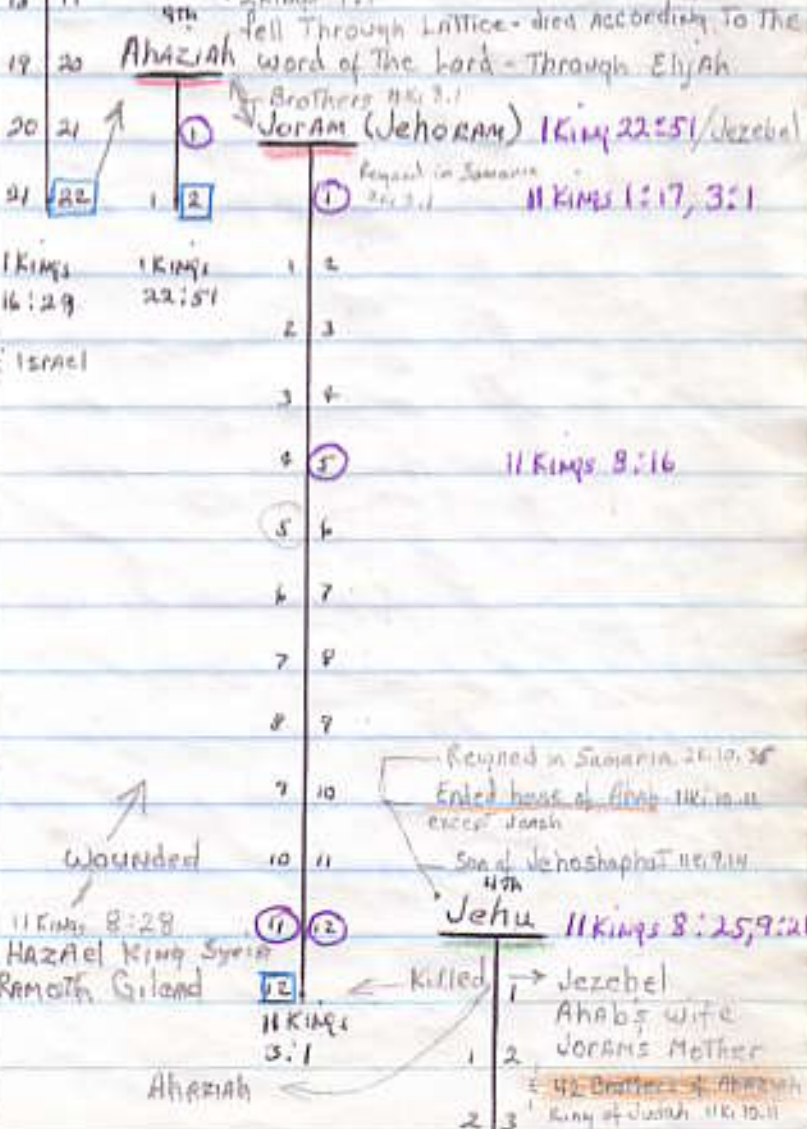 9th
fell Through Lattice - died According To The
19 20 Ahaziah word of The Lord - Through Elijah
Brothers IIKi 3:1
20 21 1 Joram (Jehoram) I King 22:51/Jezebel
Reigned in Samaria
21 22 1 2 1 2Ki 3:1 II Kings 1:17, 3:1
I Kings I Kings 1 2
16:29 22:51
2 3
Israel
3 4
4 5 II Kings 8:16
5 6
6 7
7 8
8 9
Reigned in Samaria 2K. 10, 35
9 10 Ended house of Ahab IIKi 10:11
except
Wounded 10 11 Son of Jehoshaphat IIK. 9.14
4th
II Kings 8:28 11 12 Jehu II Kings 8:25, 9:2
Hazael King Syria
Ramoth Gilead 12 Killed 1 Jezebel
II Kings Ahab's wife
3:1 1 2 Jorams Mother
Ahaziah 42 Brothers of Ahaziah
2 3 King of Judah IIKi 10.11